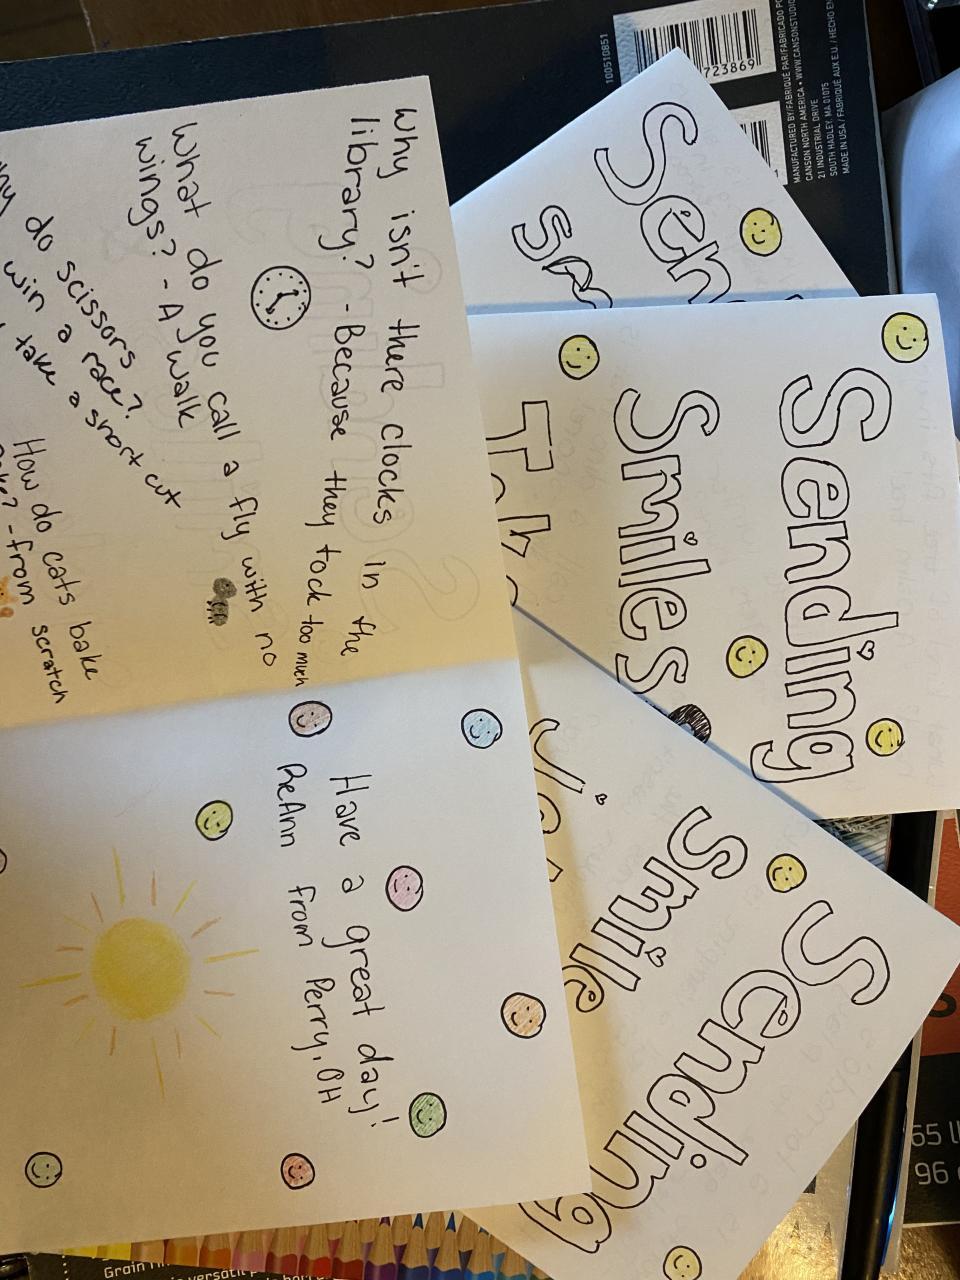 Why isn't there clocks in the
library? - Because they tock too much
What do you call a fly with no
wings? - A walk
do scissors
win a race?
take a short cut
How do cats bake
- from scratch
Have a great day!
ReAnn from Perry, OH
Sending
Smiles
Sending
Smile
100510851
723869
MANUFACTURED BY/FABRIQUÉ PAR/FABRICADO PO
CANSON NORTH AMERICA • WWW.CANSONSTUDIO
21 INDUSTRIAL DRIVE
SOUTH HADLEY, MA 01075
MADE IN USA / FABRIQUÉ AUX E.U. / HECHO EN
65 l
96
Grain